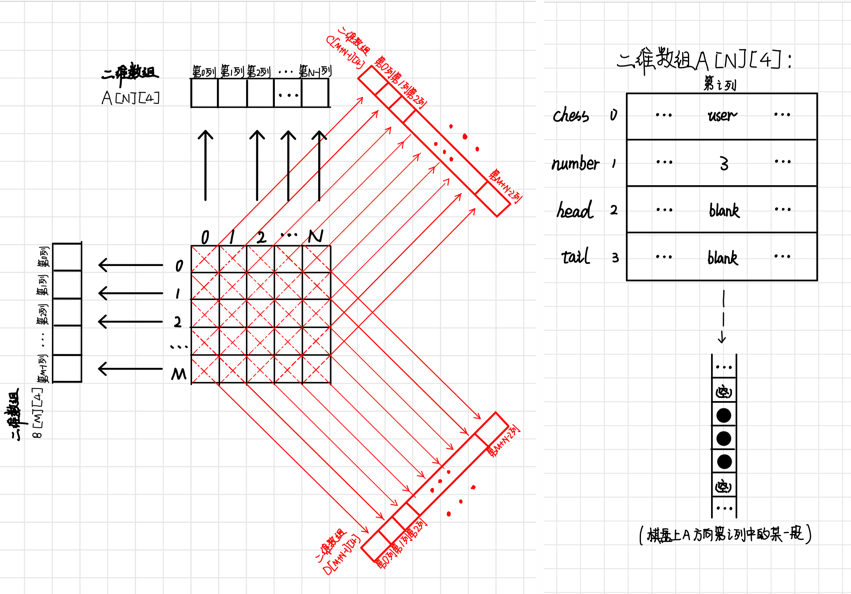 二维数组
A[N][4]
第0列 第1列 第2列 ... 第N-1列
二维数组
C[M+N-1][4]
第0列 第1列 第2列
第M+N-2列
0 1 2 ... N
0
1
2
...
M
第0列
第1列
第2列
...
第M-1列
二维数组
B[M][4]
二维数组
D[M+N-1][4]
第0列 第1列 第2列
第M+N-2列
二维数组A[N][4]:
第i列
chess 0 ... user ...
number 1 ... 3 ...
head 2 ... blank ...
tail 3 ... blank ...
...
空
空
...
(棋盘上A方向第i列中的某一段)